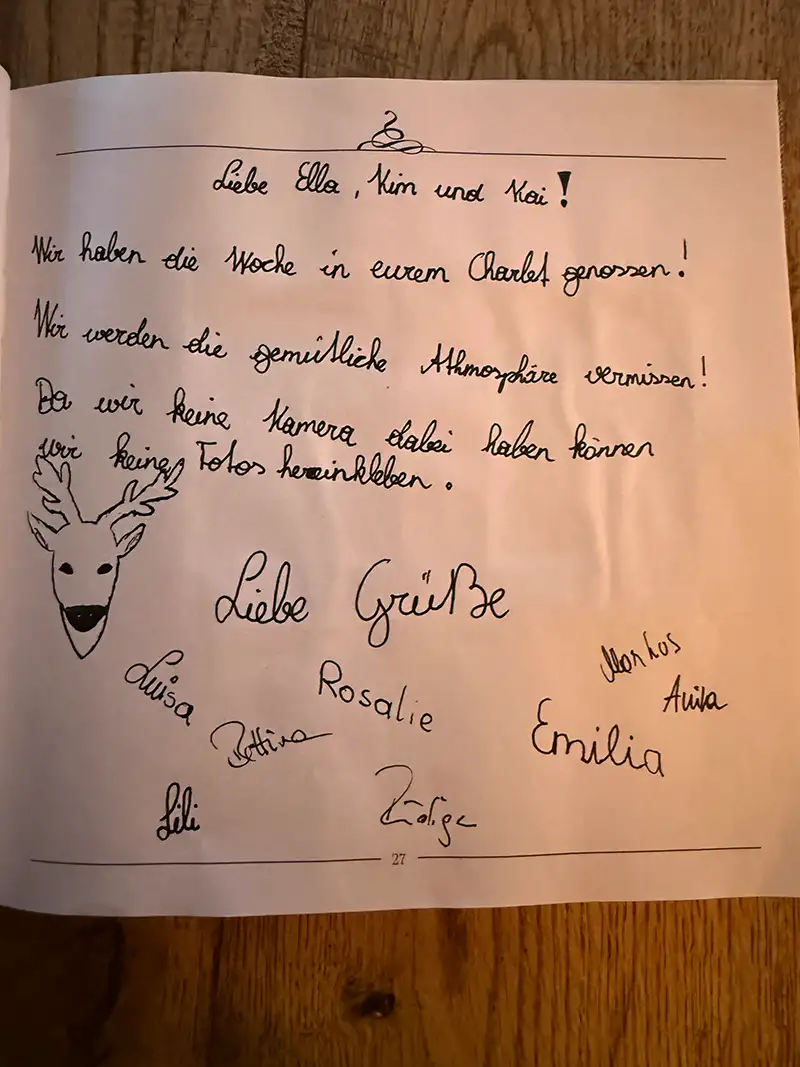 Liebe Ella, Kim und Kai!
Wir haben die Woche in eurem Charlet genossen!
Wir werden die gemütliche Athmosphäre vermissen!
Da wir keine Kamera dabei haben können
wir keine Fotos hereinkleben.
Liebe Grüße
Markus
Luisa
Rosalie
Anika
Bettina
Emilia
Lili
Rüdiger
27